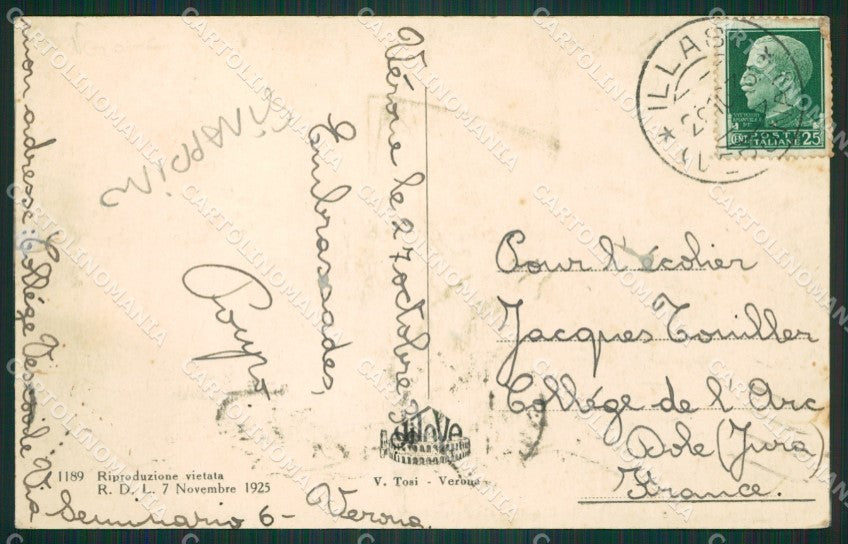 Vérone le 27 octobre
Embrassades,
mon adresse: Collège Vescovile Via
Seminario 6 - Verona.
Pour l'écolier
Jacques Touiller
Collège de l'Arc
Dole (Jura)
France.
1189 Riproduzione vietata
R. D. L. 7 Novembre 1925
V. Tosi - Verona
ILLASI
POSTE
ITALIANE
CENT. 25
CARTOLINOMANIA